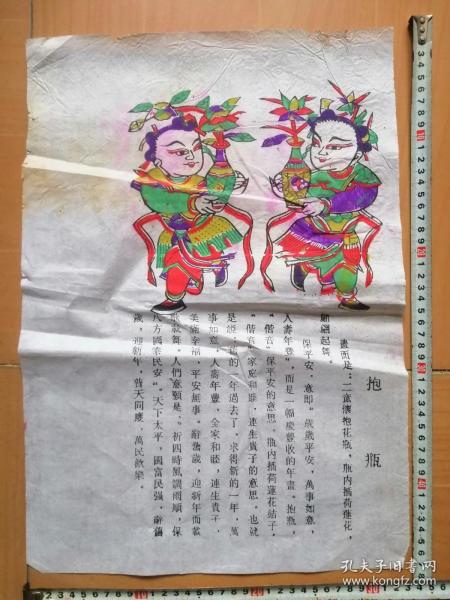 抱瓶
畫面是：二童懷抱花瓶，瓶内插荷蓮花，
翩翩起舞。
保平安，意即“歲歲平安，萬事如意，
人壽年登”，而是一幅慶豐收的年畫。抱瓶，
“偕音”保平安的意思。瓶内插荷蓮花結子，
“偕音”家庭和睦，連生貴子的意思。也就
是說：舊的一年過去了，求得新的一年，萬
事如意，人壽年豐，全家和睦，連生貴子，
美滿幸福，平安無事。辭舊歲，迎新年而載
歌載舞。人們意願是：“祈四時風調雨順，保
八方國泰民安”。天下太平，國富民强，辭舊
歲，迎新年，普天同慶，萬民歡樂。
孔夫子旧书网
www.kongfz.com